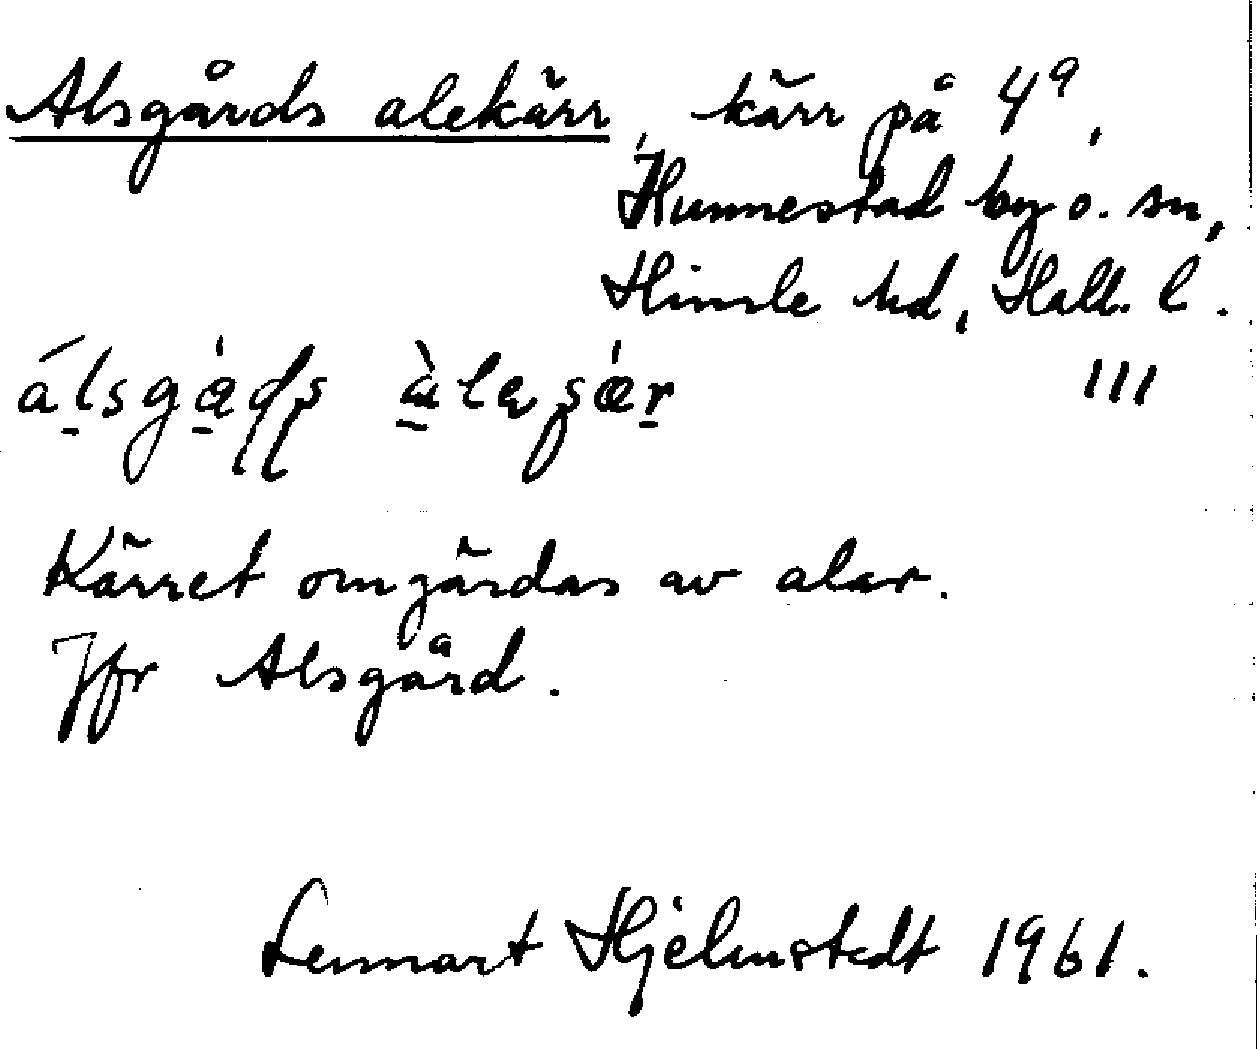 Alsgårds alekärr, kärr på 4⁹,
Hunnestad by o. sn,
Himle hd, Hall. l.
III
Kärret omgärdas av alar.
Jfr Alsgård.
Lennart Hjelmstedt 1961.